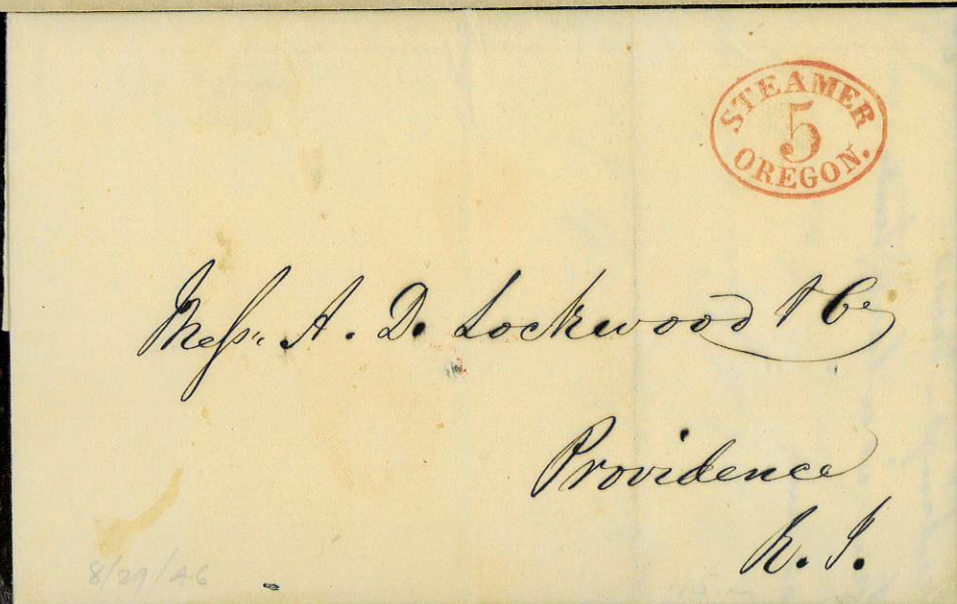 STEAMER
5
OREGON.
Messrs. A. D. Lockwood & Co
Providence
R. I.
8/29/46